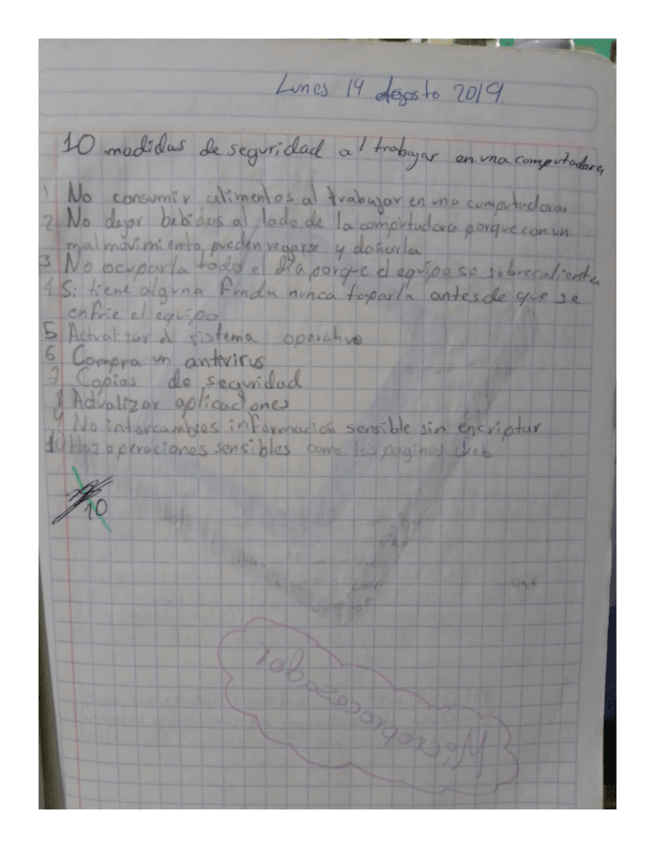 Lunes 19 Agosto 2019.
10 medidas de seguridad al trabajar en una computadora
1 No consumir alimentos al trabajar en una computadora.
2 No dejar bebidas al lado de la computadora porque con un
mal movimiento, pueden regarse y dañarla
3 No ocuparla todo el dia porque el equipo se sobrecalienta
4 Si tiene alguna funda nunca taparla antes de que se
enfrie el equipo
5 Actualizar el sistema operativo
6 Compra un antivirus
7 Copias de seguridad
8 Actualizar aplicaciones
9 No intercambies información sensible sin encriptar
10 Haz operaciones sensibles como las paginas web
10
Microprocesador